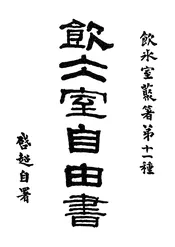 飲冰室叢箸第十一種
飲仌室自由書
啓超自署